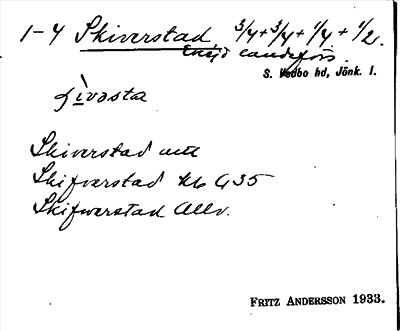 1-4 Skiverstad 3/4+3/4+1/4+1/2.
S. Vedbo hd, Jönk. l.
Skiverstad
Skifverstad Kb G35
Skifwerstad Allv.
FRITZ ANDERSSON 1933.